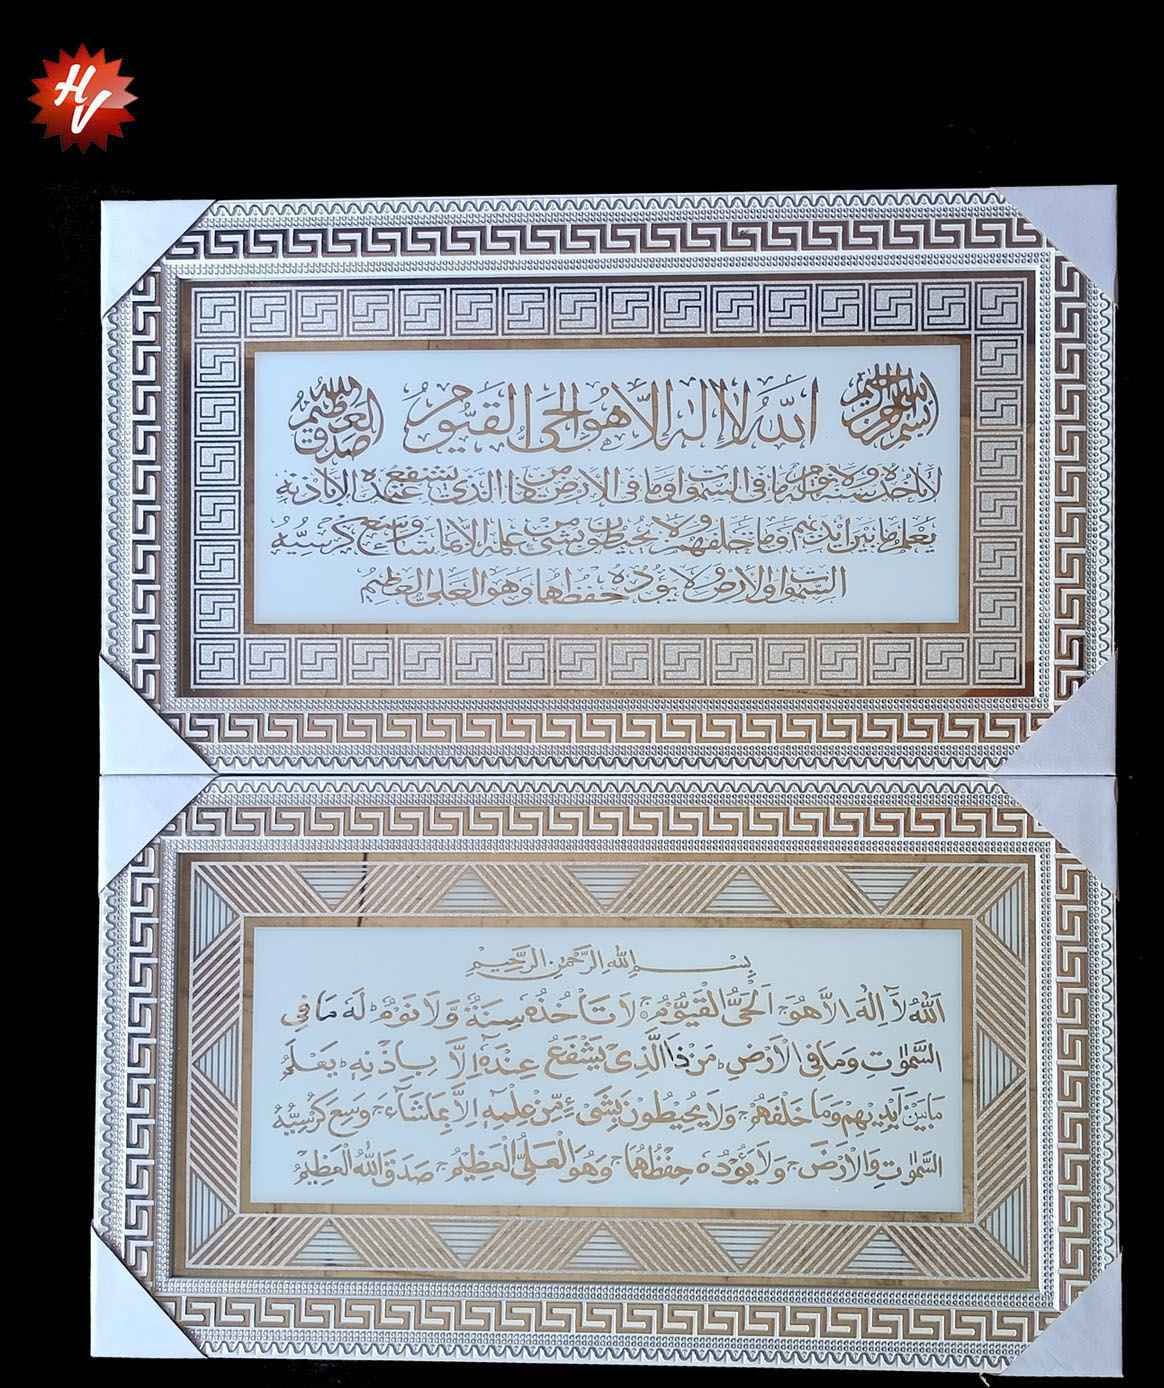 HV
بسم الله الرحمن الرحيم
الله لا اله الا هو الحي القيوم
صدق الله العظيم
لا تأخذه سنة ولا نوم له ما في السموات وما في الارض من ذا الذي يشفع عنده الا باذنه
يعلم ما بين ايديهم وما خلفهم ولا يحيطون بشئ من علمه الا بما شاء وسع كرسيه
السموات والارض ولا يؤده حفظهما وهو العلي العظيم
بِسْمِ اللهِ الرَّحْمٰنِ الرَّحِيْمِ
اَللهُ لَآ اِلٰهَ اِلَّا هُوَ اَلْحَيُّ الْقَيُّوْمُ لَا تَأْخُذُهٗ سِنَةٌ وَّلَا نَوْمٌ لَهٗ مَا فِي
السَّمٰوٰتِ وَمَا فِي الْاَرْضِ مَنْ ذَا الَّذِيْ يَشْفَعُ عِنْدَهٗٓ اِلَّا بِاِذْنِهٖ يَعْلَمُ
مَا بَيْنَ اَيْدِيْهِمْ وَمَا خَلْفَهُمْ وَلَا يُحِيْطُوْنَ بِشَيْءٍ مِّنْ عِلْمِهٖٓ اِلَّا بِمَا شَآءَ وَسِعَ كُرْسِيُّهُ
السَّمٰوٰتِ وَالْاَرْضَ وَلَا يَؤُدُهٗ حِفْظُهُمَا وَهُوَ الْعَلِيُّ الْعَظِيْمُ صَدَقَ اللهُ الْعَظِيْمُ